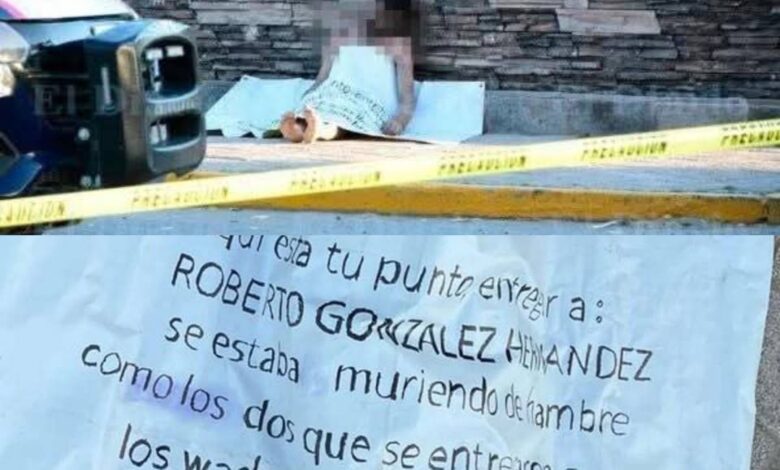 PRECAUCIÓN PRECAUCIÓN PRECAUCIÓN PRECAUCIÓN
esta tu punto entregar a:
ROBERTO GONZALEZ HERNANDEZ
se estaba muriendo de hambre
como los dos que se
los